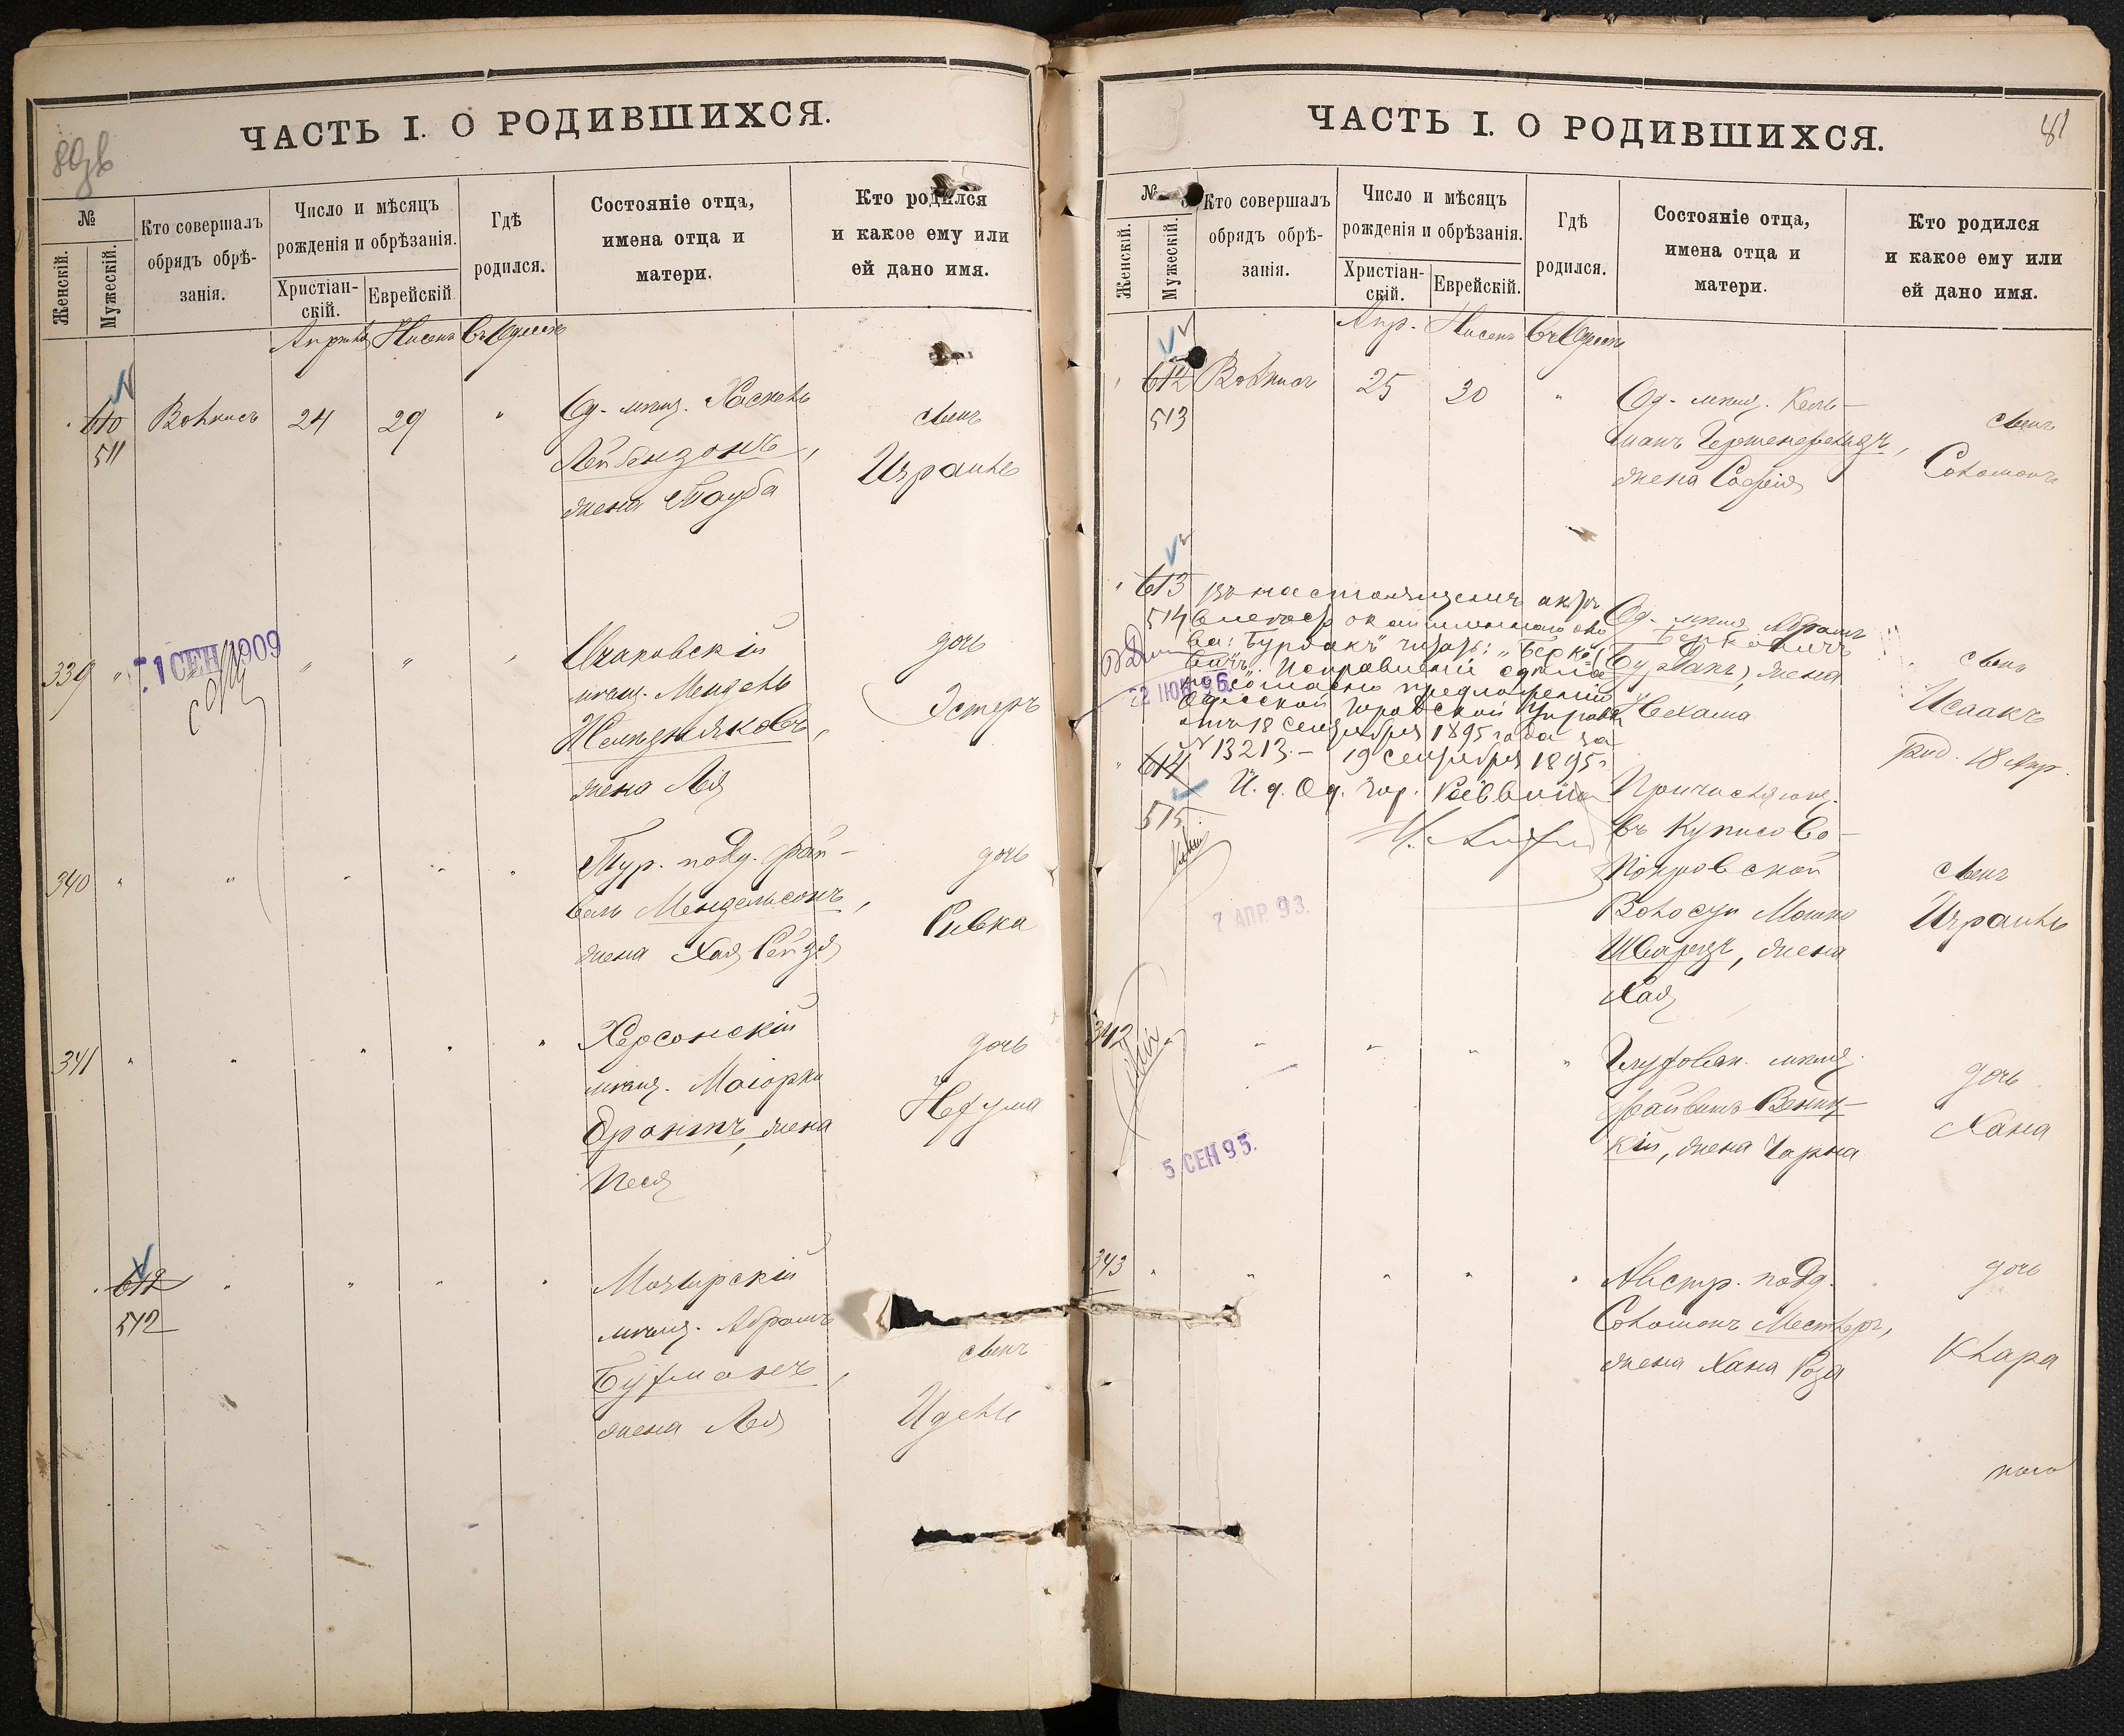 ЧАСТЬ I. О РОДИВШИХСЯ.
№
Женскій.
Мужескій.
Кто совершалъ
обрядъ обрѣ-
занія.
Число и мѣсяцъ
рожденія и обрѣзанія.
Христіан-
скій.
Еврейскій
Гдѣ
родился.
Состояніе отца,
имена отца и
матери.
Кто родился
и какое ему или
ей дано имя.
Апрѣль Нисенъ въ Одессѣ
610
511
24
29
"
Од. мѣщ. Хаскель
Лейбензонъ,
жена Тауба
сынъ
Израиль
339
"
1 СЕН 1909
"
"
"
Очаковскій
мѣщ. Мендель
жена Лея
дочь
Эстеръ
340
"
"
"
"
"
Тур. подд. Фай-
вель Мендельсонъ,
жена Хая Рейзя
дочь
Ривка
341
"
"
"
"
"
Херсонскій
мѣщ. Маіорка
Фронтъ, жена
Песя
дочь
Нехума
612
512
"
"
"
"
Мозырскій
мѣщ. Абрамъ
Буфманъ,
жена Лея
сынъ
Идель
ЧАСТЬ I. О РОДИВШИХСЯ.
81
№
Женскій.
Мужескій.
Кто совершалъ
обрядъ обрѣ-
занія.
Число и мѣсяцъ
рожденія и обрѣзанія.
Христіан-
скій.
Еврейскій.
Гдѣ
родился.
Состояніе отца,
имена отца и
матери.
Кто родился
и какое ему или
ей дано имя.
Апр. Нисенъ въ Одессѣ
612
513
25
30
"
Од. мѣщ. Кель-
манъ Герштенфельдъ,
жена Софія
сынъ
Соломонъ
613
514
въ настоящемъ актѣ
вмѣсто
ва: "Бурдакъ" читать: "Берко-
вичъ". Исправленіе сдѣла-
но согласно предложенію
Одесской Городской Управы
отъ 18 Сентября 1895 года за
№ 13213. – 19 Сентября 1895 г.
И. д. Од. гор. Раввина
22 ІЮН 96.
Од. мѣщ. Абрамъ
Берковичъ
(Бурдакъ), жена
Нехама
сынъ
Исаакъ
род. 18 Апр.
614
515
7 АПР. 93.
Причисляющ.
въ
Покровской
Волости Мошко
Шварцъ, жена
Хая
сынъ
Израиль
342
"
"
"
"
5 СЕН 95.
Глуховск. мѣщ.
Файвишъ Вениц-
кій, жена Чарна
дочь
Хана
343
"
"
"
"
"
Австр. подд.
Соломонъ Местеръ,
жена Хана Роза
дочь
Клара